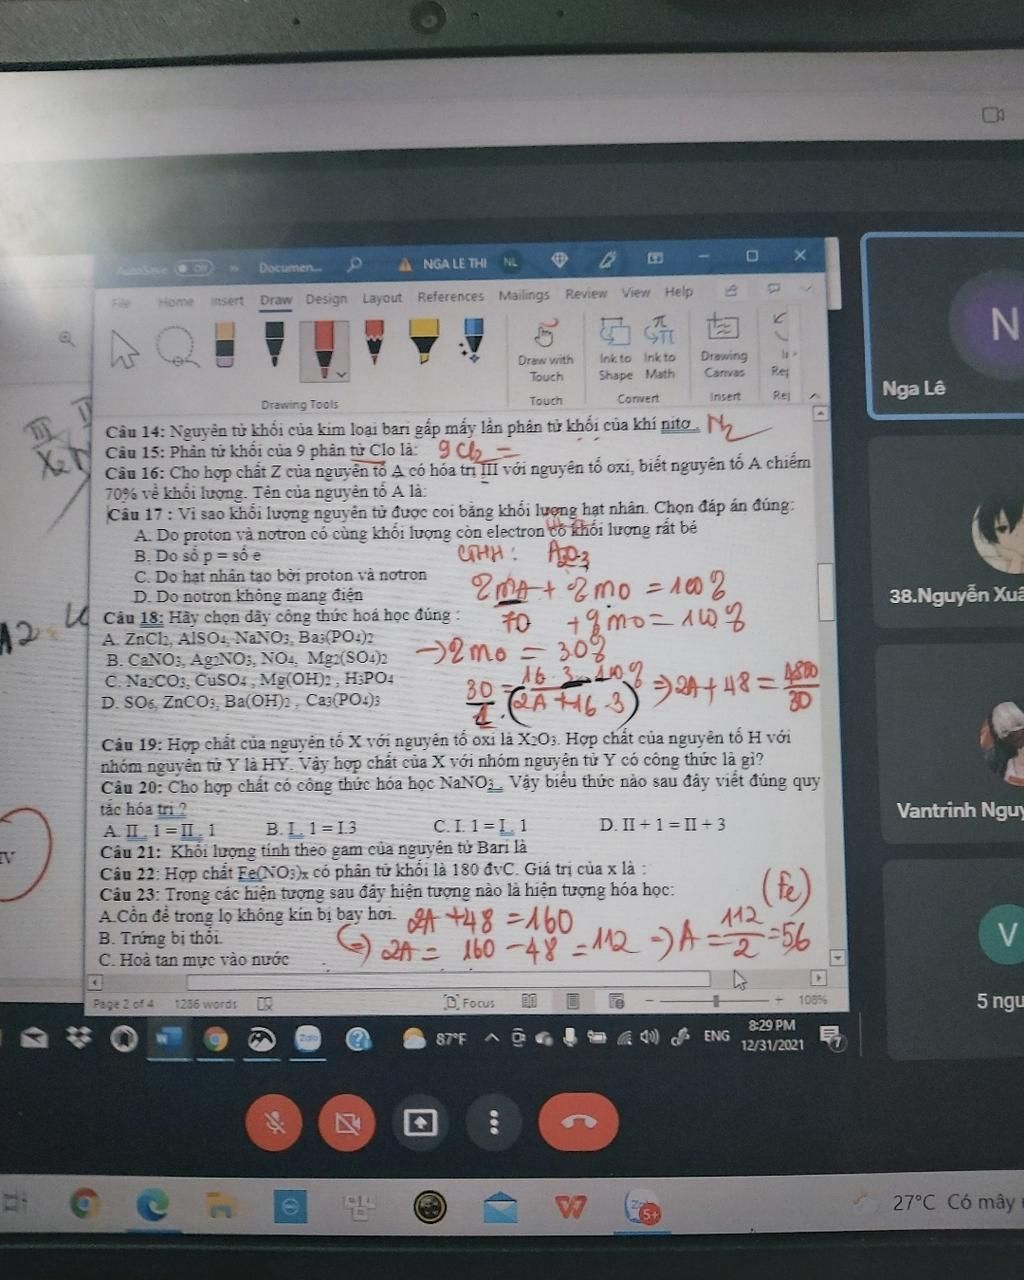 Documen...
NGA LE THI
NL
File Home Insert Draw Design Layout References Mailings Review View Help
Draw with Touch
Ink to Shape
Ink to Math
Drawing Canvas
Drawing Tools
Touch
Convert
Insert
Câu 14: Nguyên tử khối của kim loại bari gấp mấy lần phân tử khối của khí nitơ. N₂
Câu 15: Phân tử khối của 9 phân tử Clo là: 9Cl₂ =
Câu 16: Cho hợp chất Z của nguyên tố A có hóa trị III với nguyên tố oxi, biết nguyên tố A chiếm
70% về khối lượng. Tên của nguyên tố A là:
Câu 17 : Vì sao khối lượng nguyên tử được coi bằng khối lượng hạt nhân. Chọn đáp án đúng:
A. Do proton và nơtron có cùng khối lượng còn electron có khối lượng rất bé
B. Do số p = số e
CTHH: A₂O₃
C. Do hạt nhân tạo bởi proton và nơtron
D. Do notron không mang điện
Câu 18: Hãy chọn dãy công thức hoá học đúng :
A. ZnCl₂, AlSO₄, NaNO₃, Ba₃(PO₄)₂
B. CaNO₃, Ag₂NO₃, NO₄, Mg₂(SO₄)₂
C. Na₂CO₃, CuSO₄ , Mg(OH)₂ , H₃PO₄
D. SO₆, ZnCO₃, Ba(OH)₂ , Ca₃(PO₄)₃
⇒ 2A + 48 = 4800/30
Câu 19: Hợp chất của nguyên tố X với nguyên tố oxi là X₂O₃. Hợp chất của nguyên tố H với
nhóm nguyên tử Y là HY. Vậy hợp chất của X với nhóm nguyên tử Y có công thức là gì?
Câu 20: Cho hợp chất có công thức hóa học NaNO₃ . Vậy biểu thức nào sau đây viết đúng quy
tắc hóa trị ?
A. II . 1 = II . 1 B. I. 1 = I.3 C. I. 1 = I. 1 D. II + 1 = II + 3
Câu 21: Khối lượng tính theo gam của nguyên tử Bari là
Câu 22: Hợp chất Fe(NO₃)ₓ có phân tử khối là 180 đvC. Giá trị của x là :
Câu 23: Trong các hiện tượng sau đây hiện tượng nào là hiện tượng hóa học:
(Fe)
A.Cồn để trong lọ không kín bị bay hơi. 2A + 48 = 160
B. Trứng bị thối.
⇔ 2A = 160 - 48 = 112 ⇒ A = 112/2 = 56
C. Hoà tan mực vào nước
Page 2 of 4 1286 words Focus 108%
87°F ENG 8:29 PM
12/31/2021
N
Nga Lê
38.Nguyễn Xuâ
Vantrinh Nguy
V
5 ngư
27°C Có mây